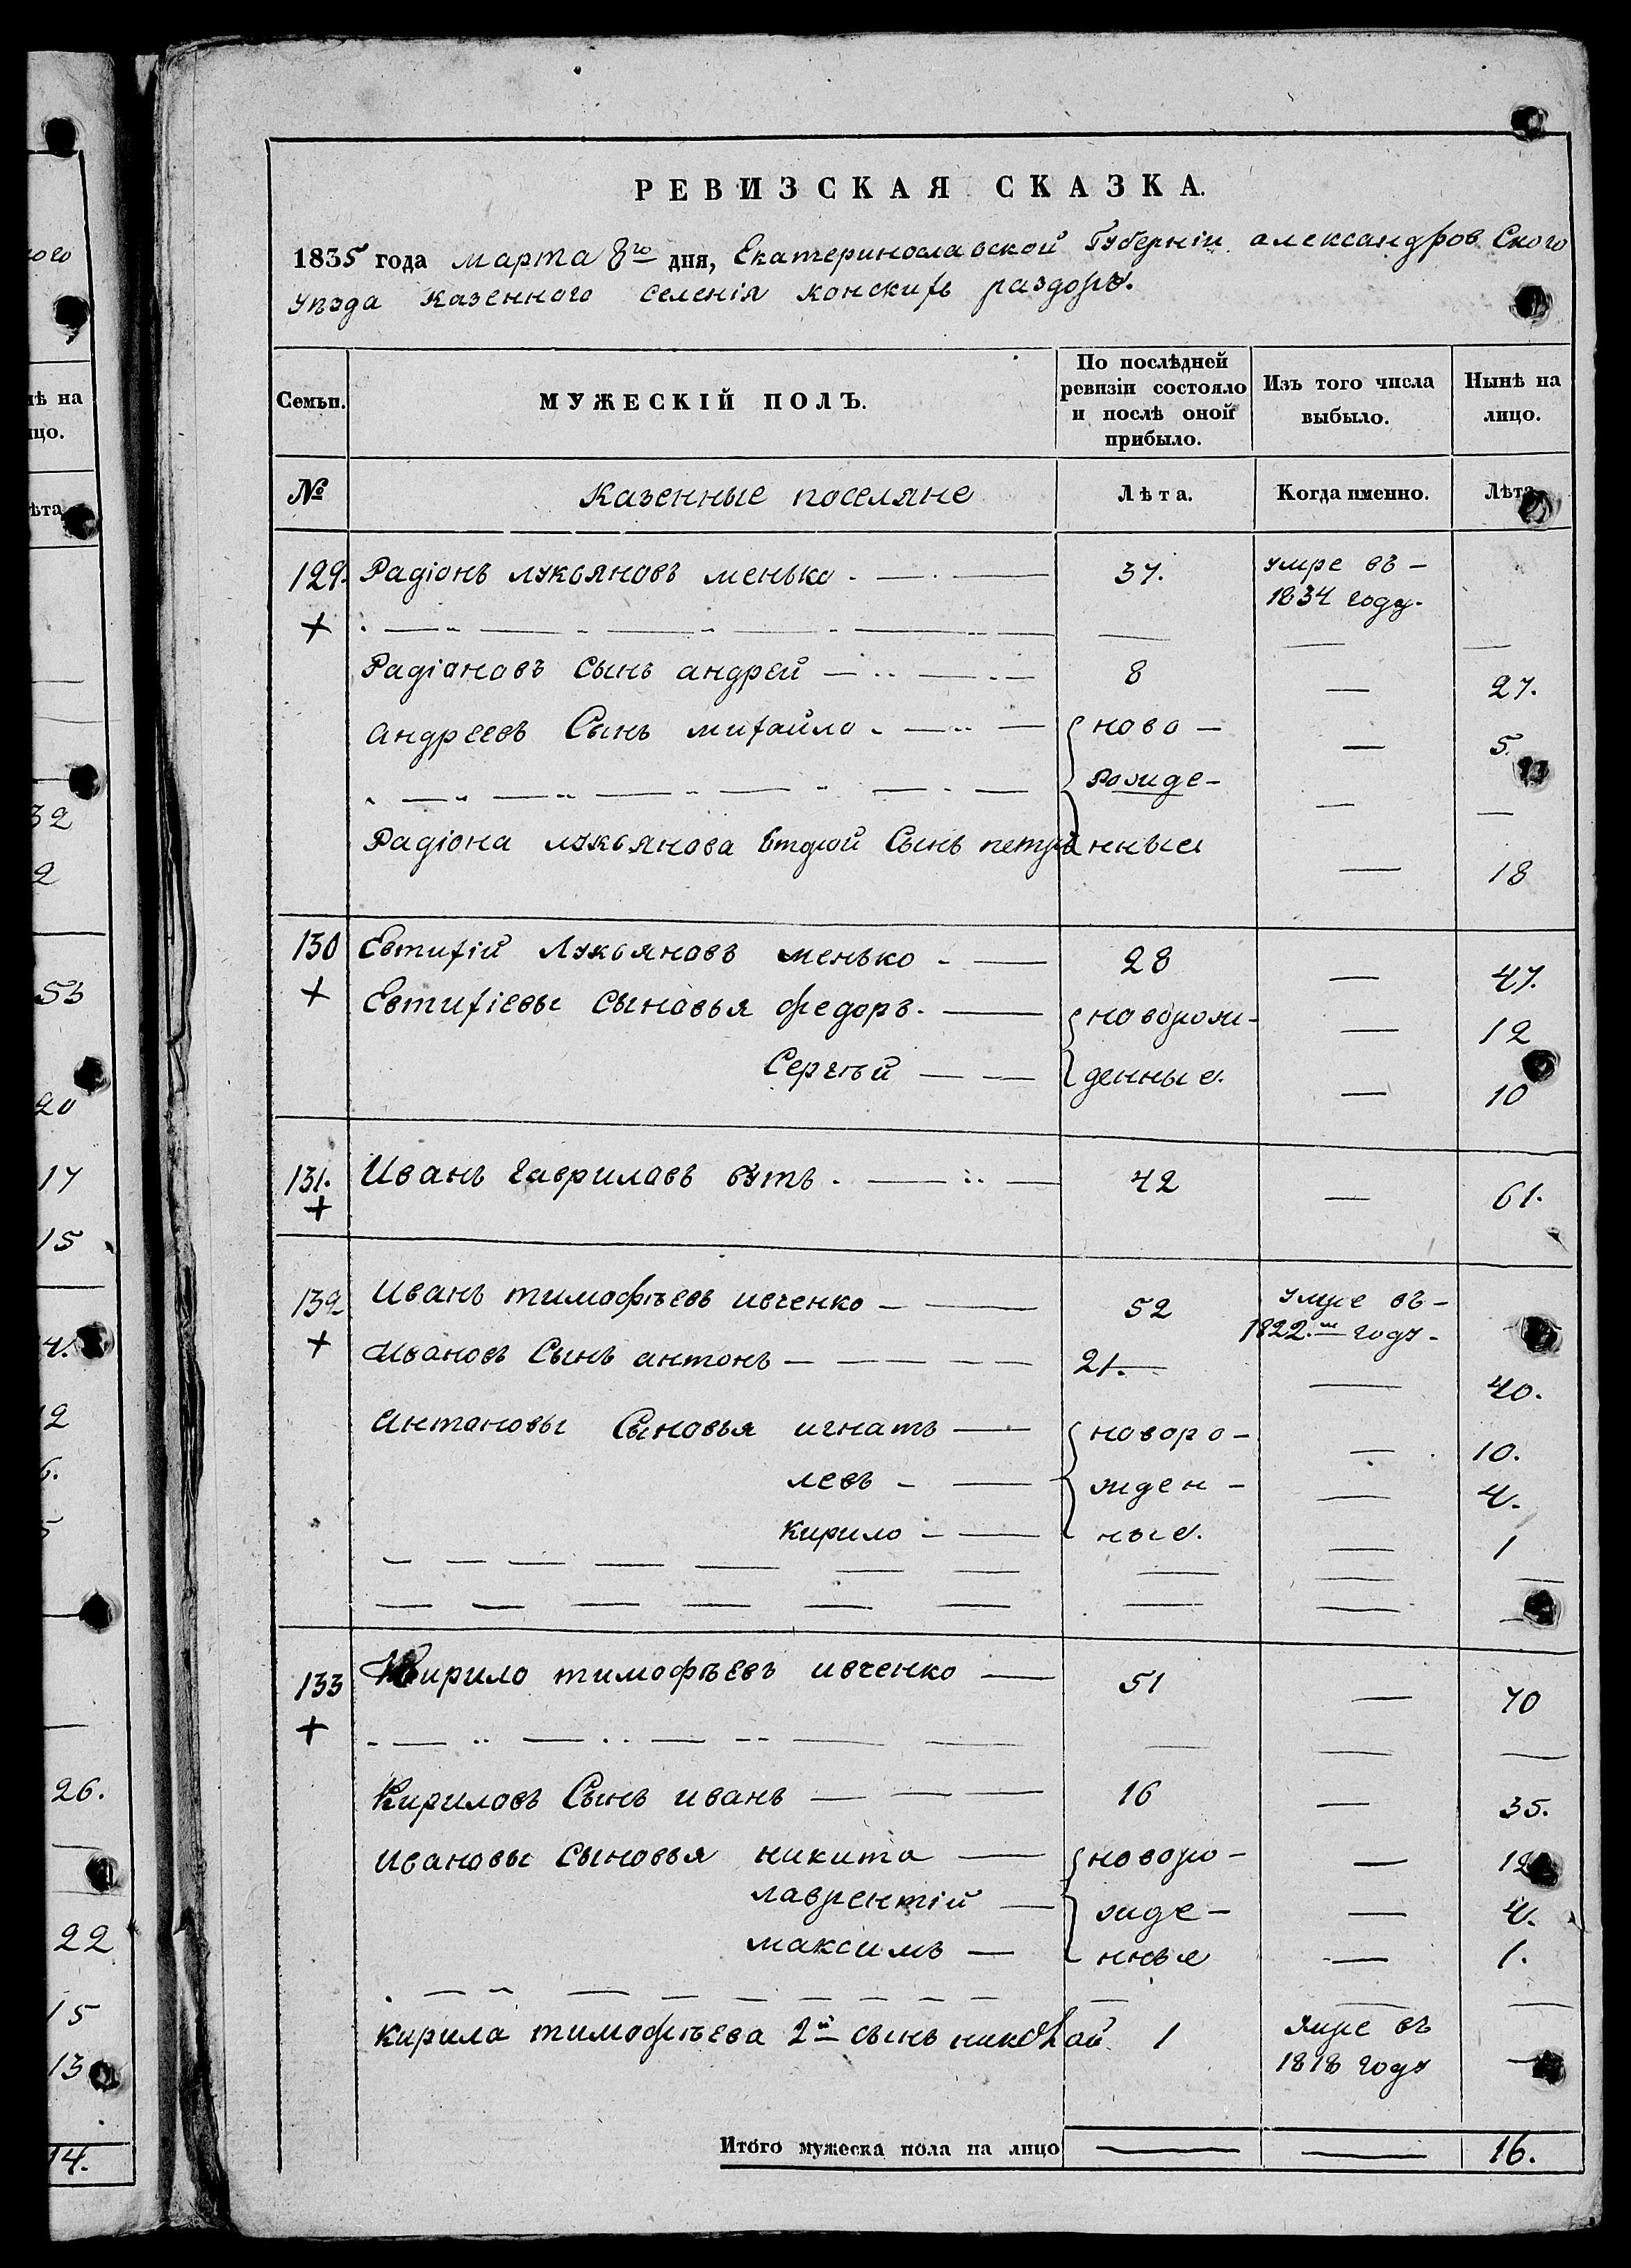 РЕВИЗСКАЯ СКАЗКА.
1835 года марта 8го дня, Екатеринославской Губерніи александровСкого
уѣзда казенного селенія конскихъ раздоръ.
Семьи.
МУЖЕСКІЙ ПОЛЪ.
По послѣдней
ревизіи состояло
и послѣ оной
прибыло.
Изъ того числа
выбыло.
Нынѣ на
лицо.
№ Казенные поселяне Лѣта. Когда именно. Лѣта
129. Радіонъ лукьяновъ менько. 37. умре въ
1834 году.
Радіоновъ Сынъ андрей 8 27.
андреевъ Сынъ михайло ново- 5.
рожде-
Радіона лукьянова второй Сынъ петръ нные 18
130 Евтихій Лукьяновъ менько 28 47.
Евтихіевы сыновья федоръ. новорож- 12
Сергѣй денные. 10
131. Иванъ гавриловъ бутъ. 42 61.
132 Иванъ тимофѣевъ ивченко 52 умре въ
1822.м году
Ивановъ Сынъ антонъ 21. 40.
антоновы Сыновья игнатъ новоро- 10.
левъ жден- 4.
кирило ные. 1
133 Кирило тимофѣевъ ивченко 51 70
Кириловъ Сынъ иванъ 16 35.
ивановы Сыновья никита новоро- 12
лаврентій жде- 4.
максимъ нные 1.
кирила тимофѣева 2й сынъ николай 1 умре въ
1818 году
Итого мужеска пола на лицо 16.
ого
нѣ на
цо.
ѣта
32
2
53
20
17
15
4.
12
6.
5
26.
22
15
13
14.